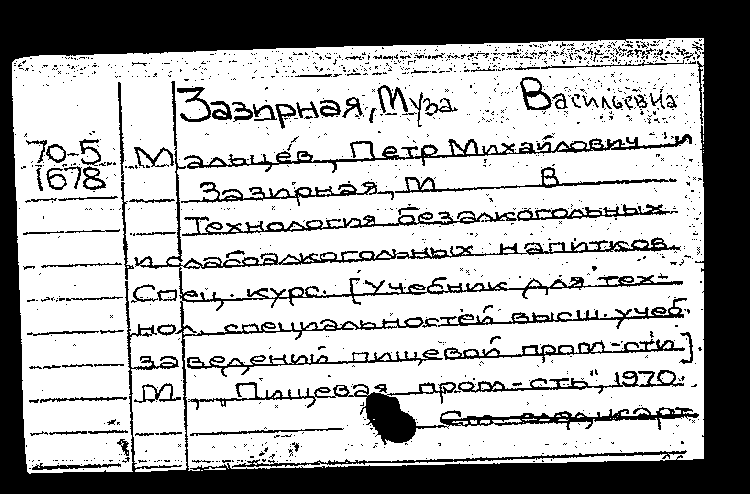 Зазирная, Муза Васильевна
70-5
1678
Мальцев, Петр Михайлович и
Зазирная, М В
Технология безалкогольных
и слабоалкогольных напитков.
Спец. курс. [Учебник для тех-
нол. специальностей высш. учеб.
заведений пищевой пром-сти].
М., „Пищевая пром-сть", 1970.
См. след. карт.